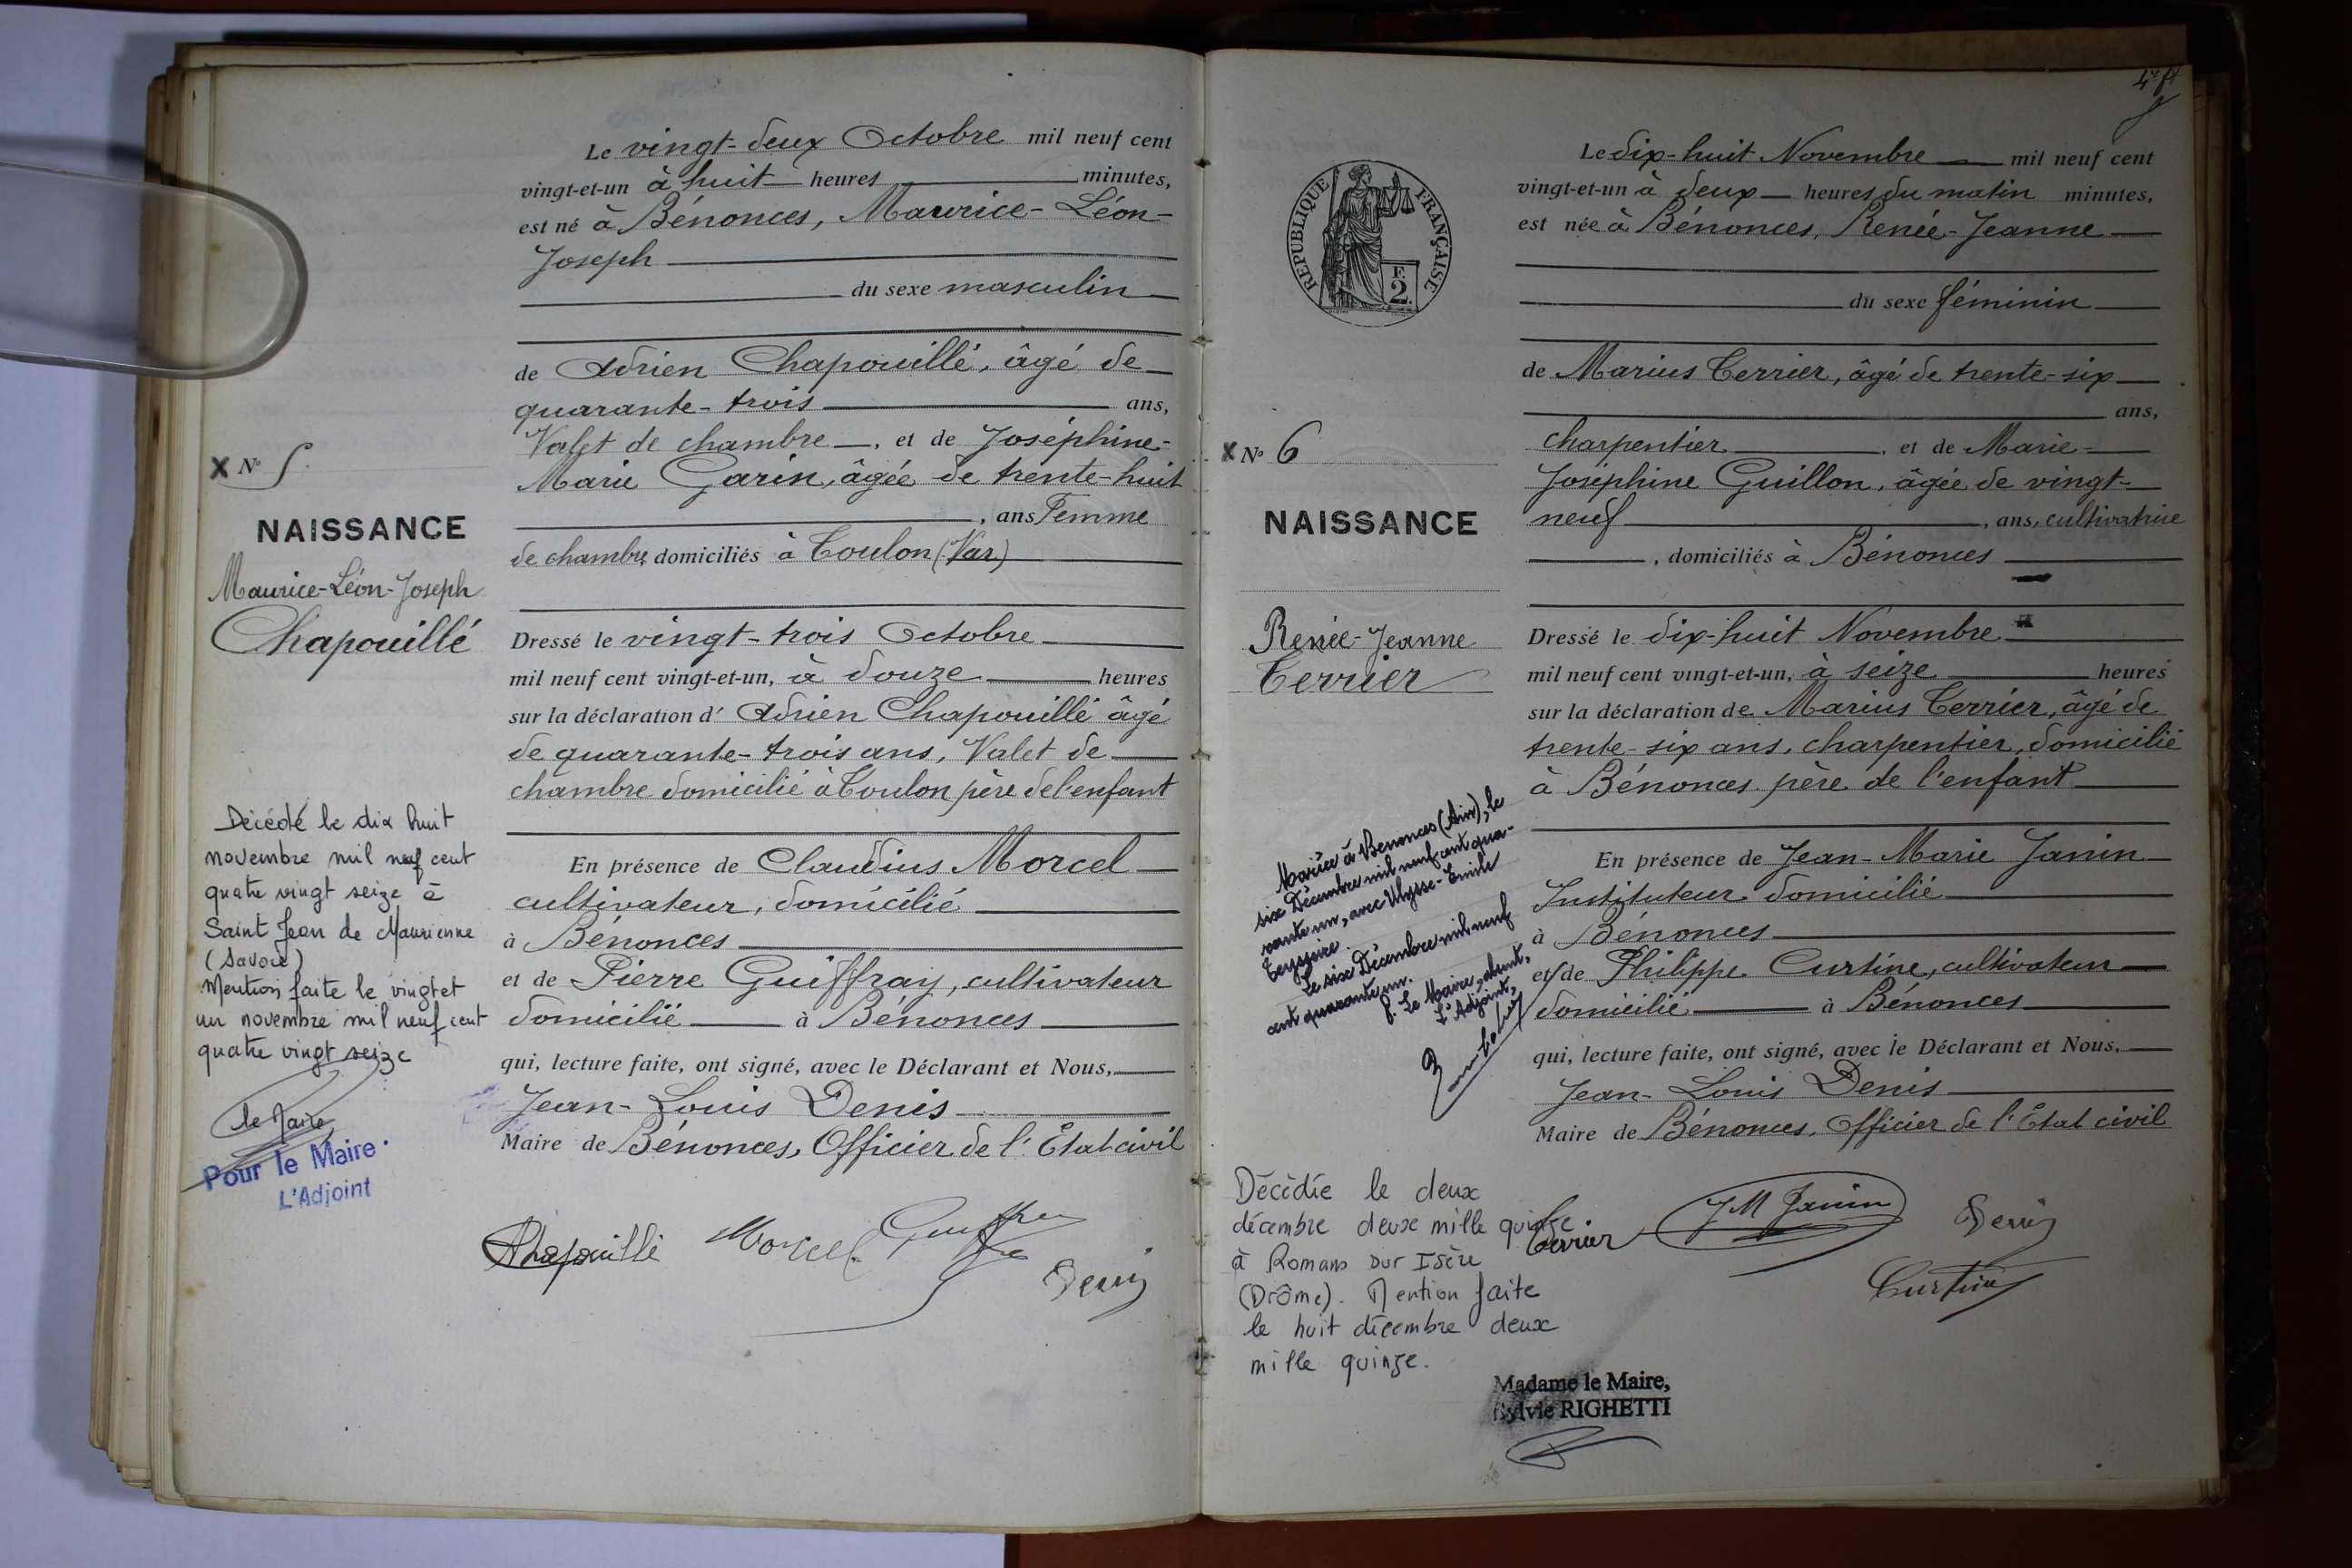 Le vingt-deux Octobre mil neuf cent
vingt-et-un à huit heures minutes,
est né à Bénonces, Maurice-Léon-
Joseph
du sexe masculin
de Adrien Chapouillé, âgé de
quarante-trois ans,
Valet de chambre, et de Joséphine-
Marie Garin, âgée de trente-huit
, ans Femme
de chambre, domiciliés à Toulon (Var)
Dressé le vingt-trois Octobre
mil neuf cent vingt-et-un, à douze heures
sur la déclaration d' Adrien Chapouillé âgé
de quarante-trois ans, Valet de
chambre domicilié à Toulon père de l'enfant
En présence de Claudius Morcel
cultivateur, domicilié
à Bénonces
et de Pierre Guiffray, cultivateur
domicilié à Bénonces
qui, lecture faite, ont signé, avec le Déclarant et Nous,
Jean-Louis Denis
Maire de Bénonces, Officier de l'État civil
AChapouillé Morcel Guiffray
Denis
X N° 5
NAISSANCE
Maurice-Léon-Joseph
Chapouillé
Décédé le dix huit
novembre mil neuf cent
quatre vingt seize à
Saint Jean de Maurienne
(Savoie)
Mention faite le vingt et
un novembre mil neuf cent
quatre vingt seize
Le Maire
Pour le Maire.
L'Adjoint
RÉPUBLIQUE FRANÇAISE
F.
2.
X N° 6
NAISSANCE
Renée-Jeanne
Terrier
Mariée à Bénonces (Ain), le
six Décembre mil neuf cent qua-
rante un, avec Ulysse-Emile
Teysseire.
Le six Décembre mil neuf
cent quarante un.
P. Le Maire, absent,
L'Adjoint,
Décédée le deux
décembre deux mille quinze.
à Romans sur Isère
(Drôme). Mention faite
le huit décembre deux
mille quinze.
Madame le Maire,
Sylvie RIGHETTI
Le dix-huit Novembre mil neuf cent
vingt-et-un à deux heures du matin minutes,
est née à Bénonces, Renée-Jeanne
du sexe féminin
de Marius Terrier, âgé de trente-six
ans,
charpentier, et de Marie-
Joséphine Guillon, âgée de vingt-
neuf, ans, cultivatrice
, domiciliés à Bénonces
Dressé le dix-huit Novembre
mil neuf cent vingt-et-un, à seize heures
sur la déclaration de Marius Terrier, âgé de
trente-six ans, charpentier, domicilié
à Bénonces père de l'enfant
En présence de Jean-Marie Janin
Instituteur domicilié
à Bénonces
et de Philippe Curtine, cultivateur
domicilié à Bénonces
qui, lecture faite, ont signé, avec le Déclarant et Nous,
Jean-Louis Denis
Maire de Bénonces, Officier de l'État civil
Terrier JM Janin Denis
Curtine